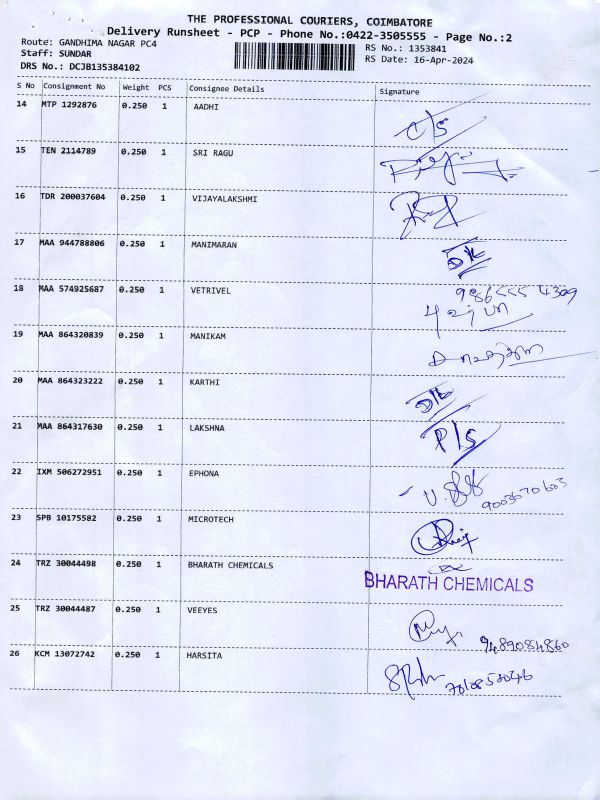 THE PROFESSIONAL COURIERS, COIMBATORE
Delivery Runsheet - PCP - Phone No.:0422-3505555 - Page No.:2
Route: GANDHIMA NAGAR PC4
RS No.: 1353841
Staff: SUNDAR
RS Date: 16-Apr-2024
DRS No.: DCJB135384102
S No Consignment No Weight PCS Consignee Details Signature
14 MTP 1292876 0.250 1 AADHI C/S
15 TEN 2114789 0.250 1 SRI RAGU
16 TDR 200037604 0.250 1 VIJAYALAKSHMI
17 MAA 944788806 0.250 1 MANIMARAN D/L
18 MAA 574925687 0.250 1 VETRIVEL
19 MAA 864320839 0.250 1 MANIKAM
20 MAA 864323222 0.250 1 KARTHI D/L
21 MAA 864317630 0.250 1 LAKSHNA P/S
22 IXM 506272951 0.250 1 EPHONA
23 SPB 10175582 0.250 1 MICROTECH
24 TRZ 30044498 0.250 1 BHARATH CHEMICALS
BHARATH CHEMICALS
25 TRZ 30044487 0.250 1 VEEYES
9489084860
26 KCM 13072742 0.250 1 HARSITA